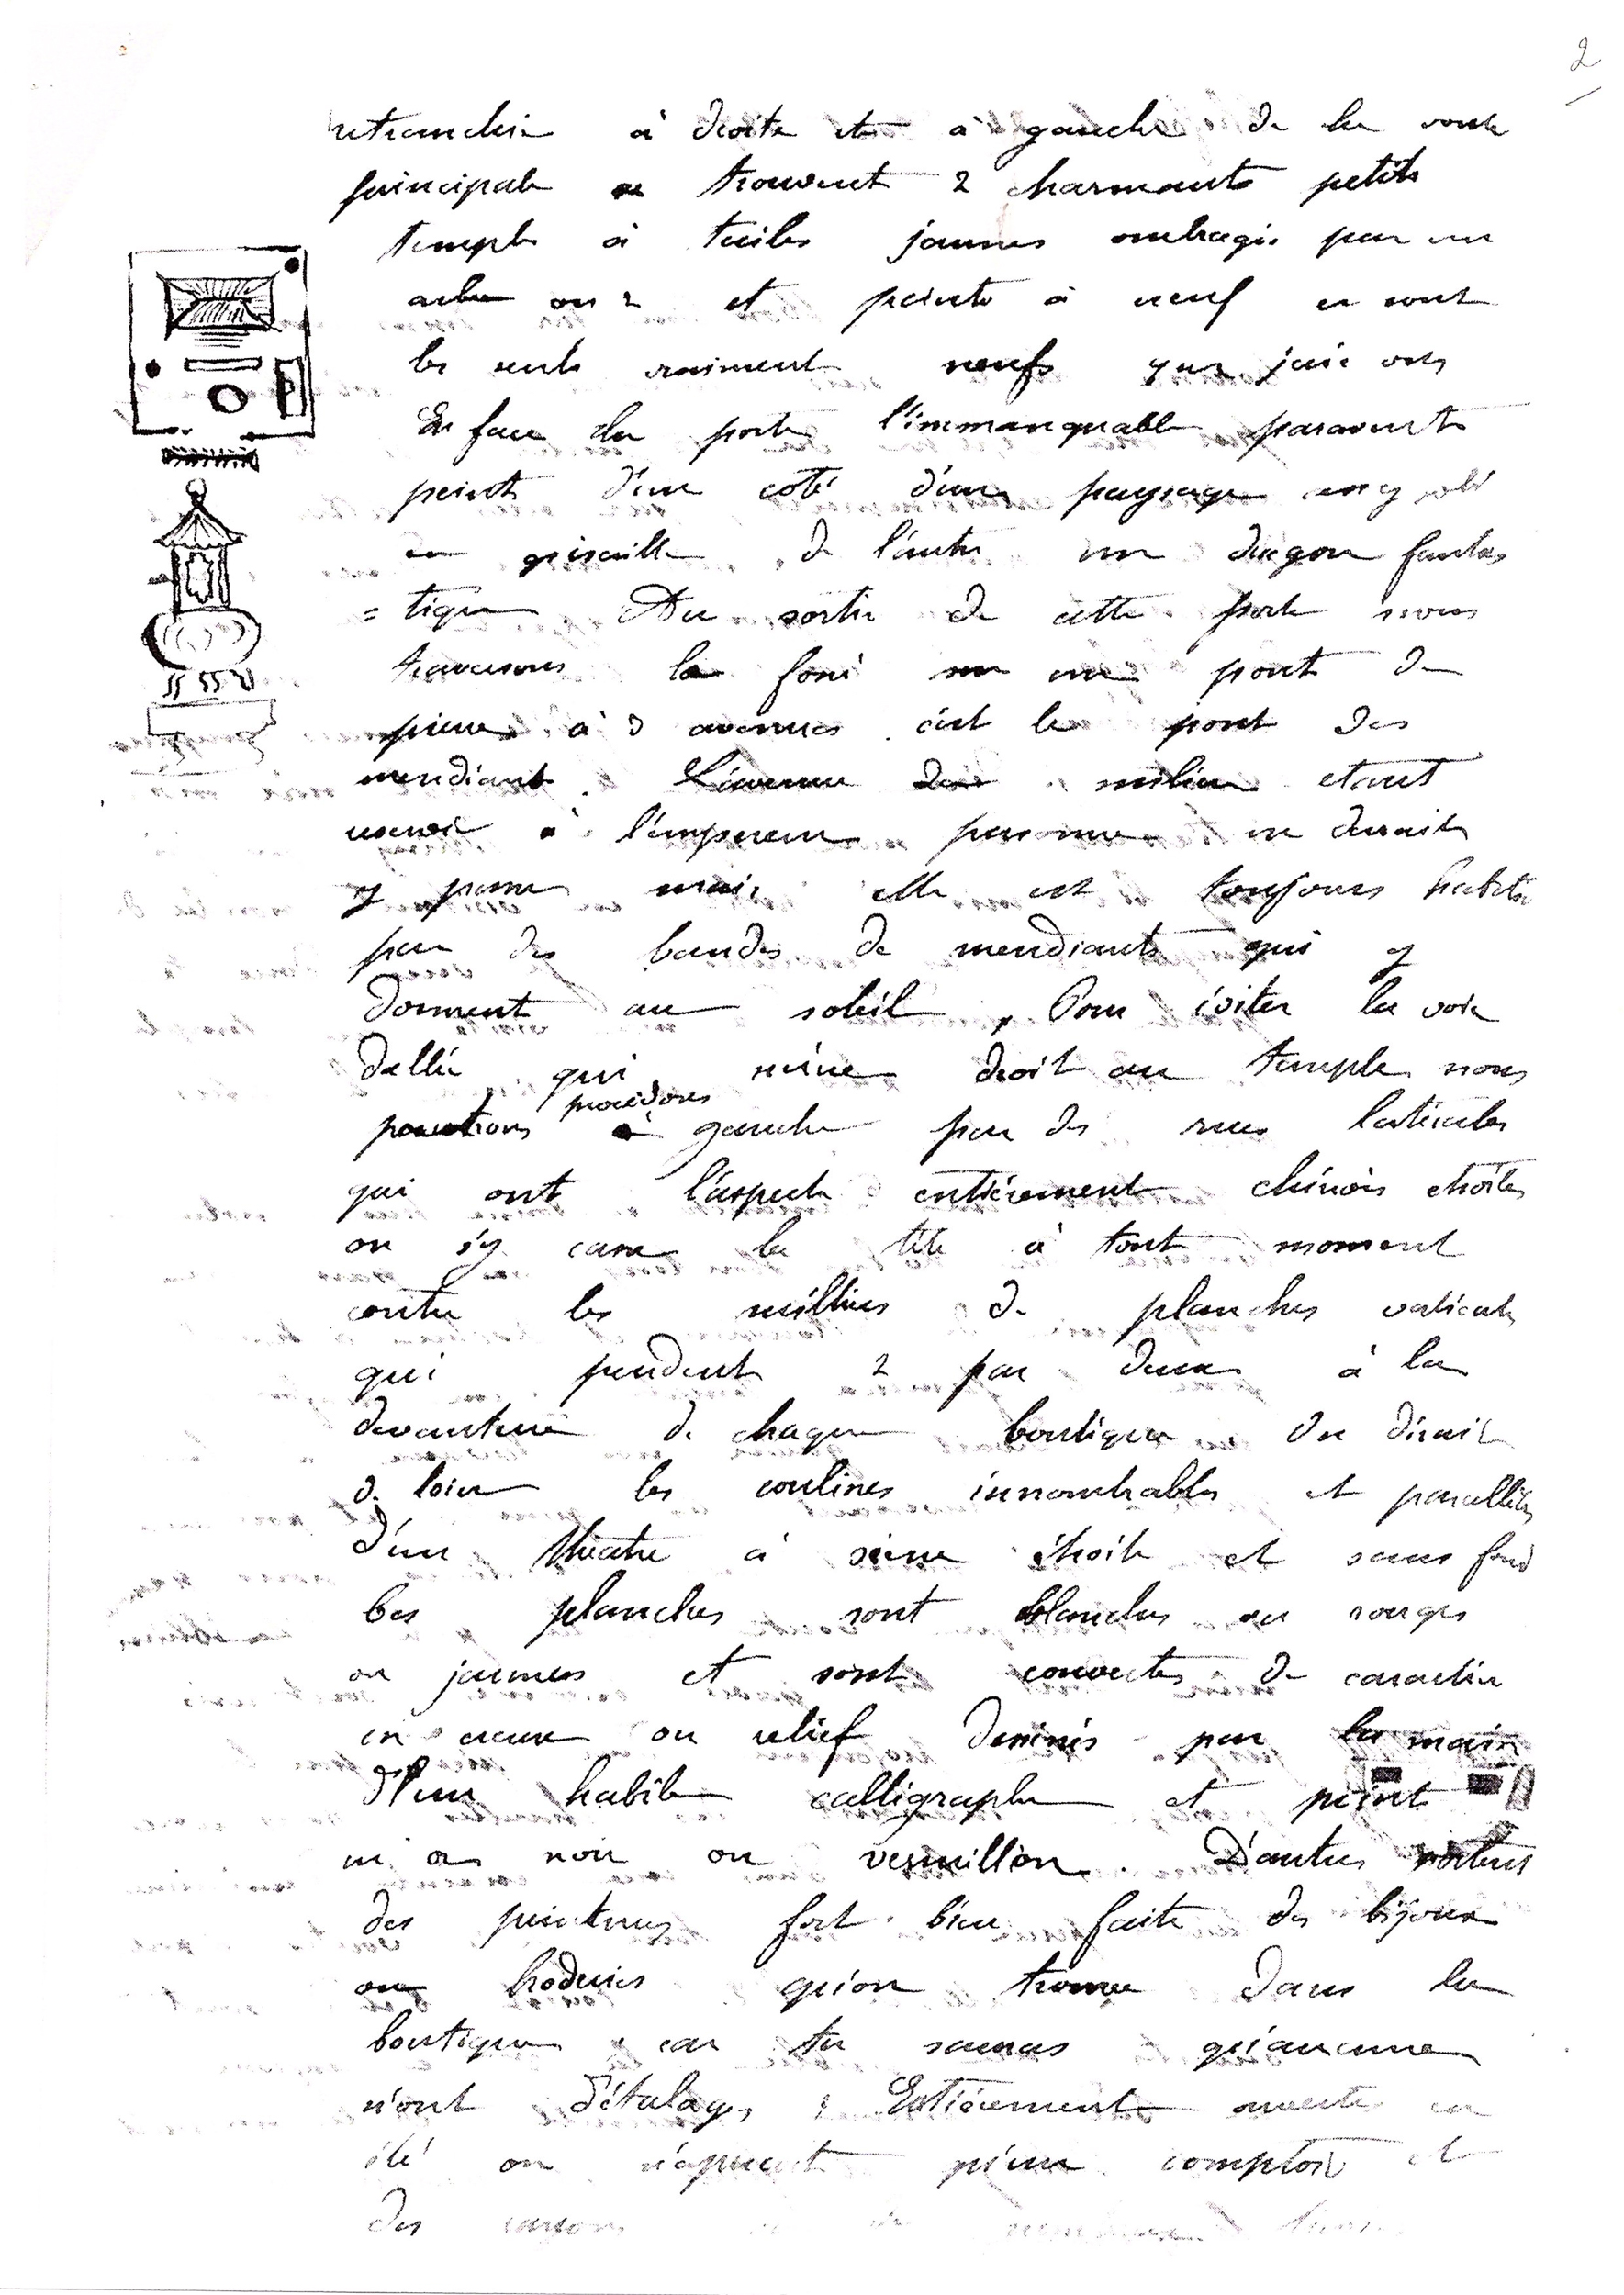 2
retranchée à droite et à gauche de la voute
principale se trouvent 2 charmants petits
temples à tuiles jaunes ombragés par un
arbre ou 2 et peints à neuf ce sont
les seuls vraiment neufs que j'aie vus
En face la porte l'immanquable paravent
peint d'un coté d'un paysage assez joli
en grisaille de l'autre un dragon fantas
= tique Au sortir de cette porte nous
traversons le fossé sur un pont de
pierre à 3 avenues c'est le pont des
mendiants. L'avenue du milieu etant
réservée à l'empereur personne ne devrait
y passer mais elle est toujours habitée
par des bandes de mendiants qui y
dorment au soleil. Pour éviter la voie
dallée qui mène droit au temple nous
procédons
à gauche par des rues latérales
qui ont l'aspect entièrement chinois etroites
on s'y casse la tête à tout moment
contre les milliers de planches verticales
qui pendent 2 par deux à la
devanture de chaque boutique. On dirait
de loin les coulisses innombrables et parallèles
d'un théatre à scène étroite et sans fond
Ces planches sont blanches ou rouges
ou jaunes et sont couvertes de caractère
en creux ou relief dessinés par la main
d'un habile calligraphe et peint
en or noir ou vermillon. D'autres portent
des peintures fort bien faites des bijoux
ou broderies qu'on trouve dans la
boutique car tu sauras qu'aucune
n'ont d'étalages. Entièrement ouvertes en
été on n'aperçoit qu'un comptoir et
des